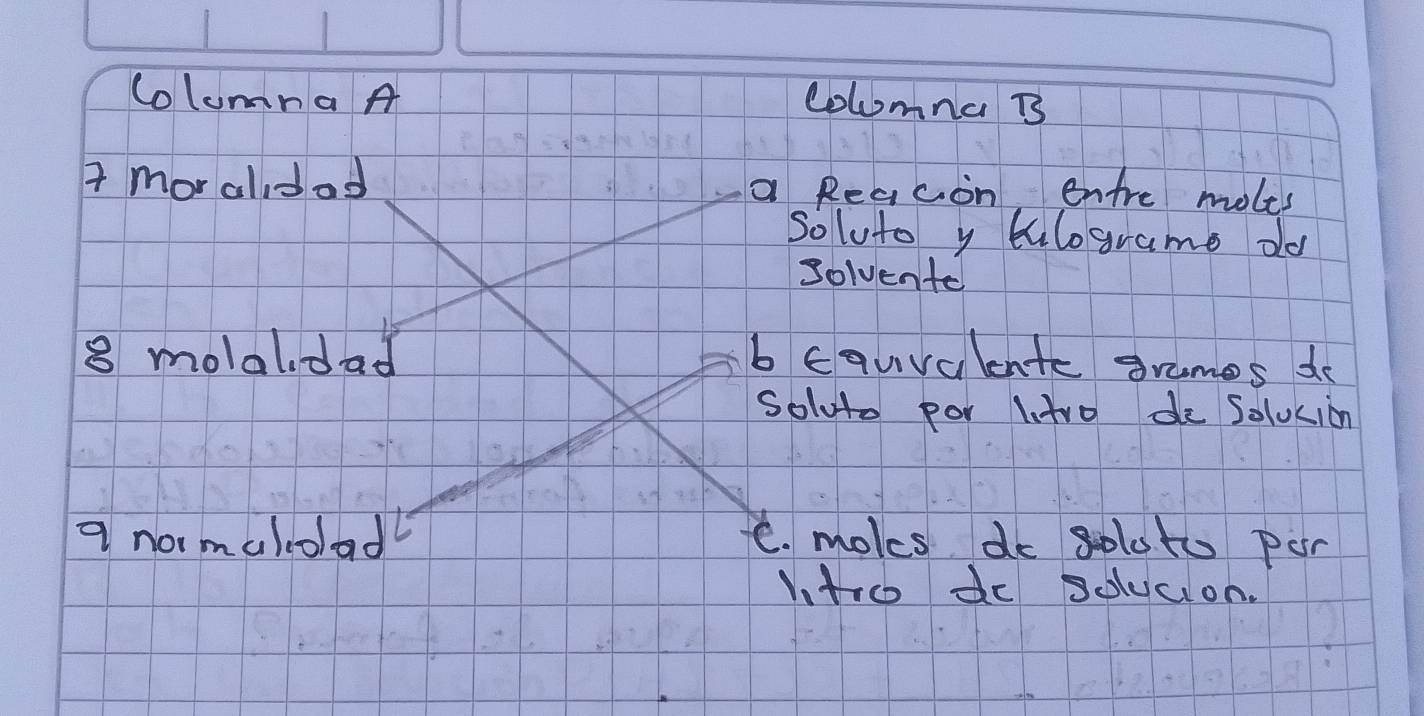 Columna A
Columna B
7 moralidad
a Reacion entre moles
Soluto y Kilogramo de
Solvente
8 molalidad
b Equivalente gramos de
Soluto por litro de Solución
9 normalidad
c. moles de soluto por
litro de solucion.